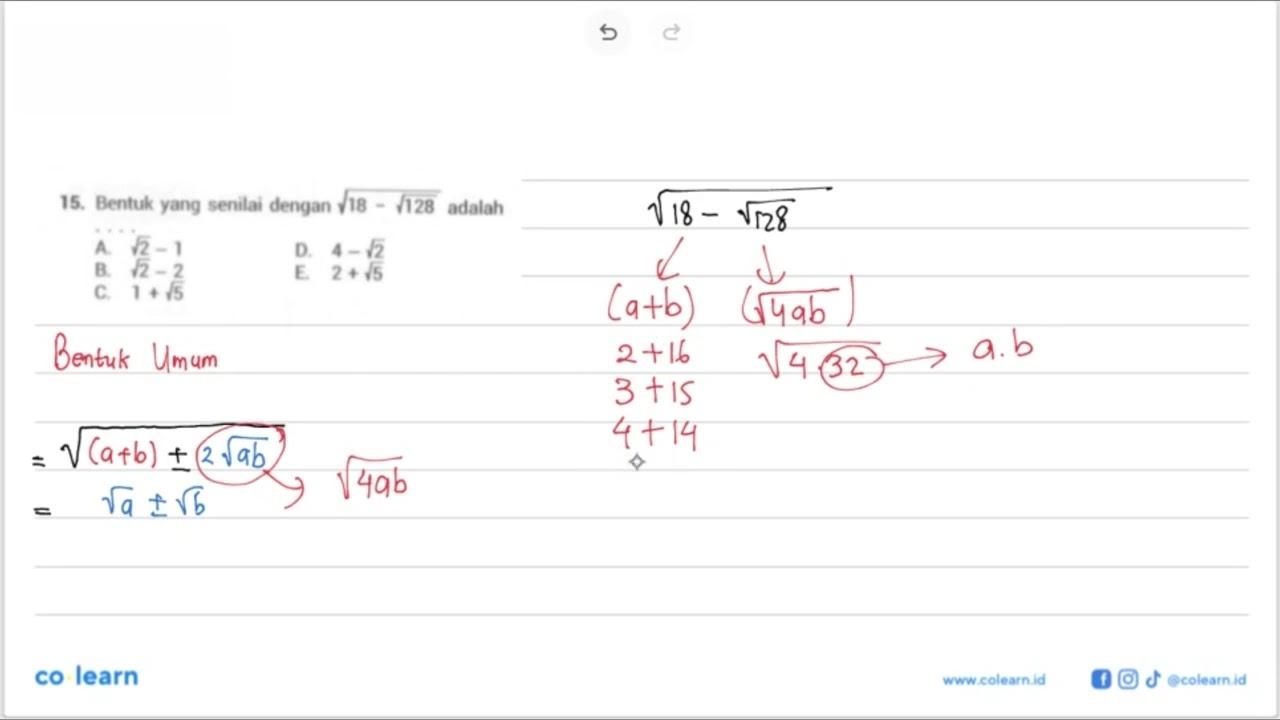 15. Bentuk yang senilai dengan √18 − √128 adalah
. . . .
A. √2 − 1
B. √2 − 2
C. 1 + √5
D. 4 − √2
E. 2 + √5
Bentuk Umum
= √(a+b) ± 2√ab
= √a ± √b
√4ab
√18 − √128
(a+b) (√4ab)
2 + 16 √4 . 32 → a.b
3 + 15
4 + 14
co learn
www.colearn.id @colearn.id